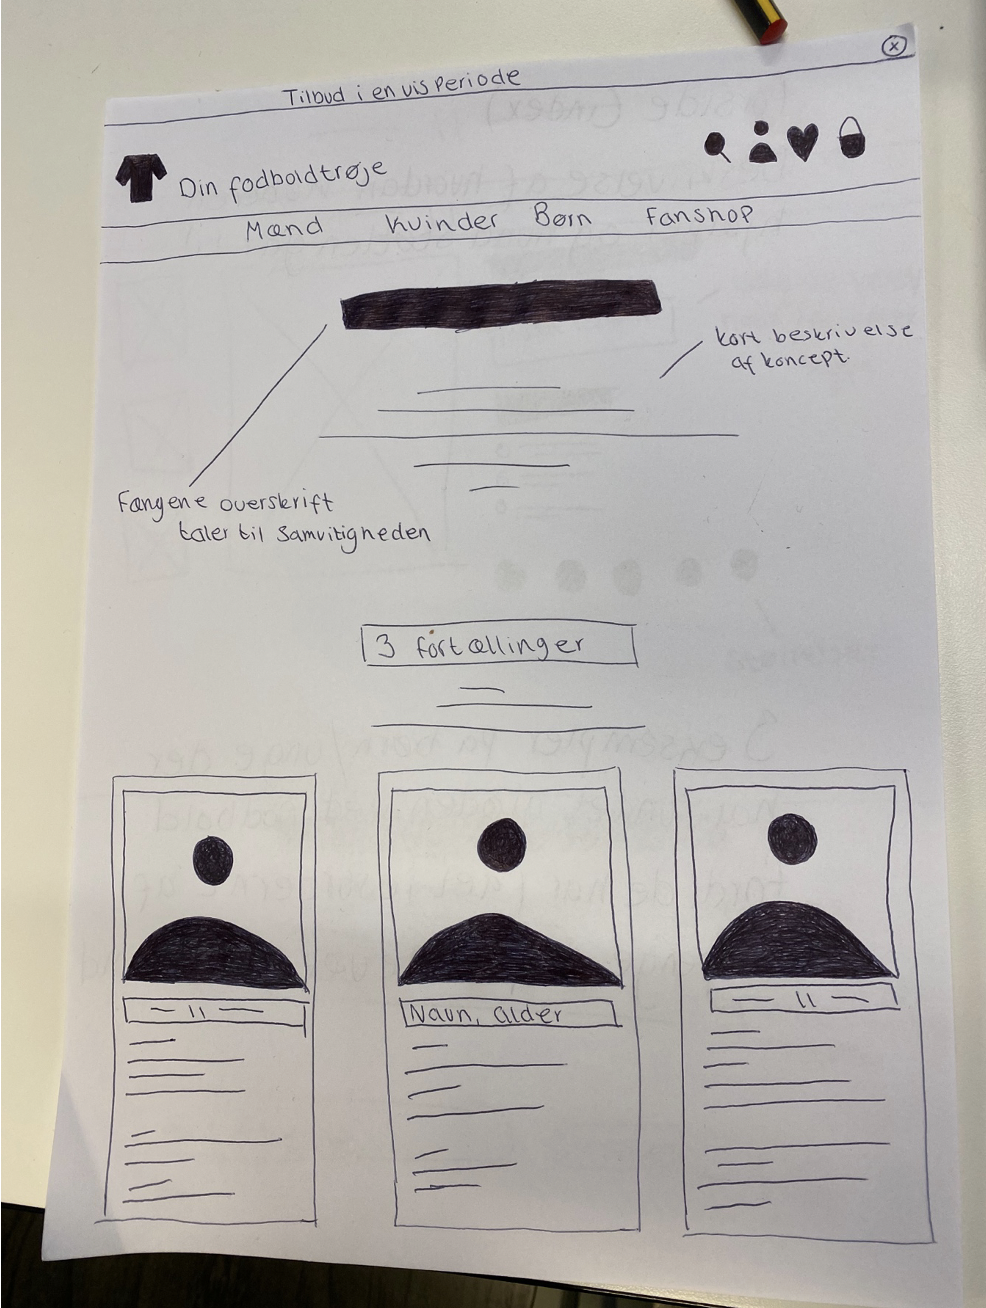 Tilbud i en vis Periode
x
Din fodboldtrøje
Mænd Kvinder Børn Fanshop
kort beskrivelse
af koncept.
Fængene overskrift
taler til Samvitigheden
3 fortællinger
— ıı —
Navn, alder
— ıı —